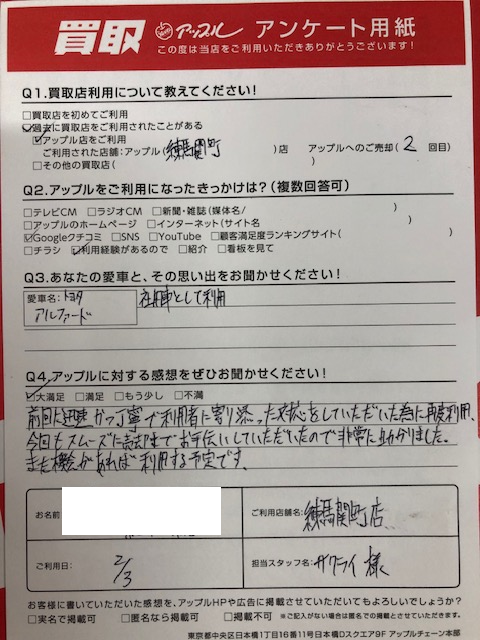 買取 アップル アンケート用紙
この度は当店をご利用いただきありがとうございます!
Q1.買取店利用について教えてください!
□買取店を初めてご利用
☑過去に買取店をご利用されたことがある
☑アップル店をご利用
ご利用された店舗:アップル( 練馬関町 )店 アップルへのご売却( 2 回目)
□その他の買取店( )
Q2.アップルをご利用になったきっかけは?(複数回答可)
□テレビCM □ラジオCM □新聞・雑誌(媒体名/ )
□アップルのホームページ □インターネット(サイト名 )
☑Googleクチコミ □SNS □YouTube □顧客満足度ランキングサイト( )
□チラシ ☑利用経験があるので □紹介 □看板を見て
Q3.あなたの愛車と、その思い出をお聞かせください!
愛車名:トヨタ 社用車として利用
アルファード
Q4.アップルに対する感想をぜひお聞かせください!
☑大満足 □満足 □もう少し □不満
前回も迅速かつ丁寧で利用者に寄り添った対応をしていただいた為に再度利用、
今回もスムーズに売却までお手伝いしていただいたので非常に助かりました。
また機会があれば利用する予定です。
お名前 ご利用店舗名: 練馬関町店
ご利用日: 2/3 担当スタッフ名: サクライ様
お客様に書いていただいた感想を、アップルHPや広告に掲載させていただいてもよろしいでしょうか?
□実名で掲載可 □匿名なら掲載可 □掲載不可 ※ご記入がない場合は匿名での掲載とさせていただきます。
東京都中央区日本橋1丁目16番11号日本橋Dスクエア9F アップルチェーン本部